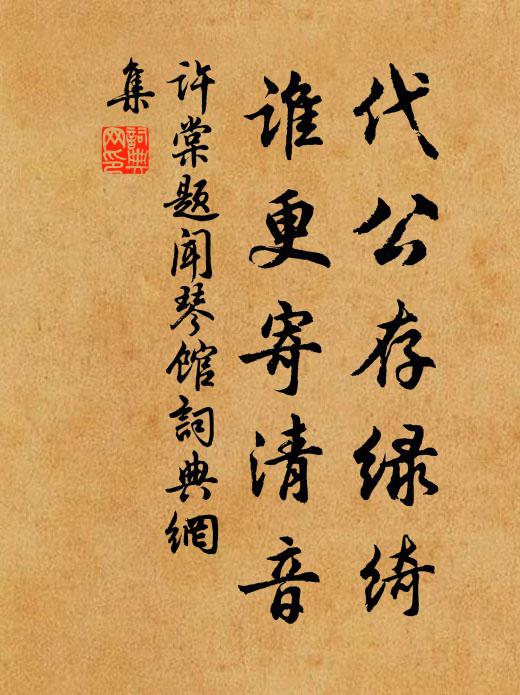 代公存绿绮
谁更寄清音
许棠题闻琴馆詞典網
集
詞典网印